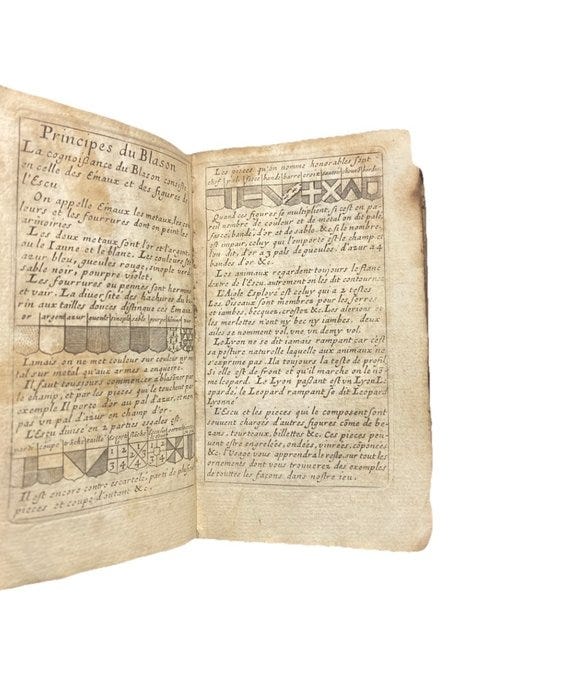 Principes du Blason
La cognoissance du Blason consiste
en celle des Emaux et des figures de
l'Escu
On appelle Emaux les metaux, les cou
leurs et les fourrures dont on peint les
armoiries
Les deux metaux sont l'or et l'argent
ou le Iaune et le blanc. Les couleurs sont
azur bleu, gueules rouge, sinople verd
sable noir, pourpre violet.
Les fourrures ou pennes sont hermine
et vair. La diversité des hachures du bu
rin aux tailles douces distingue ces Emaux
or argent azur gueule sinople sable pourpre
Iamais on ne met couleur sur couleur ny me
tal sur metal qu'aux armes a enquerre.
Il faut tousjours commencer a blasonner par
le champ, et par les pieces qui le touchent par
exemple Il porte d'or au pal d'azur, et non
pas un pal d'azur en champ d'or.
L'Escu divisé en 2 parties esgales est
parti coupé tranché taillé
1 2 3 4
Il est encore contre escartelé, parti de plusieurs
pieces et coupé d'autant &c.
Les pieces qu'on nomme honorables sont
chef pal fasce bande barre croix sautoir
Quand ces figures se multiplient, si c'est en pa
reil nombre de couleur et de metal on dit palé,
fascé, bandé, d'or et de sable. &c. si le nombre,
est impair, celuy qui l'emporte est le champ, et
l'on dit, d'or a 3 pals de gueules. d'azur a 4
bandes d'or &c.
Les animaux regardent tousjours le flanc
dextre de l'Escu, autrement on les dit contournez
L'Aigle Esployé est celuy qui a 2 testes
Les Oiseaux sont membrez pour les serres
et iambes, becquez, crestez &c. Les alerions et
les merlettes n'ont ny bec ny iambes. deux
ailes se nomment vol, vne, vn demy vol.
Le Lyon ne se dit iamais rampant car c'est
sa posture naturelle laquelle aux animaux ne
s'exprime pas. Il a tousjours la teste de profil
Si elle est de front et qu'il marche on le nõ
me leopard. Le Lyon passant est vn Lyon Leo
pardé, le Leopard rampant se dit Leopard
Lyonné
L'Escu et les pieces qui le composent sont
souvent chargés d'autres figures cõme de be
zans, tourteaux, billettes &c. Ces pieces peu
vent estre engreslées, ondées, vivrées, cõponées
&c. l'Usage vous apprendra le reste, sur tout les
ornements dont vous trouverez des exemples
de toutes les façons dans nostre jeu.